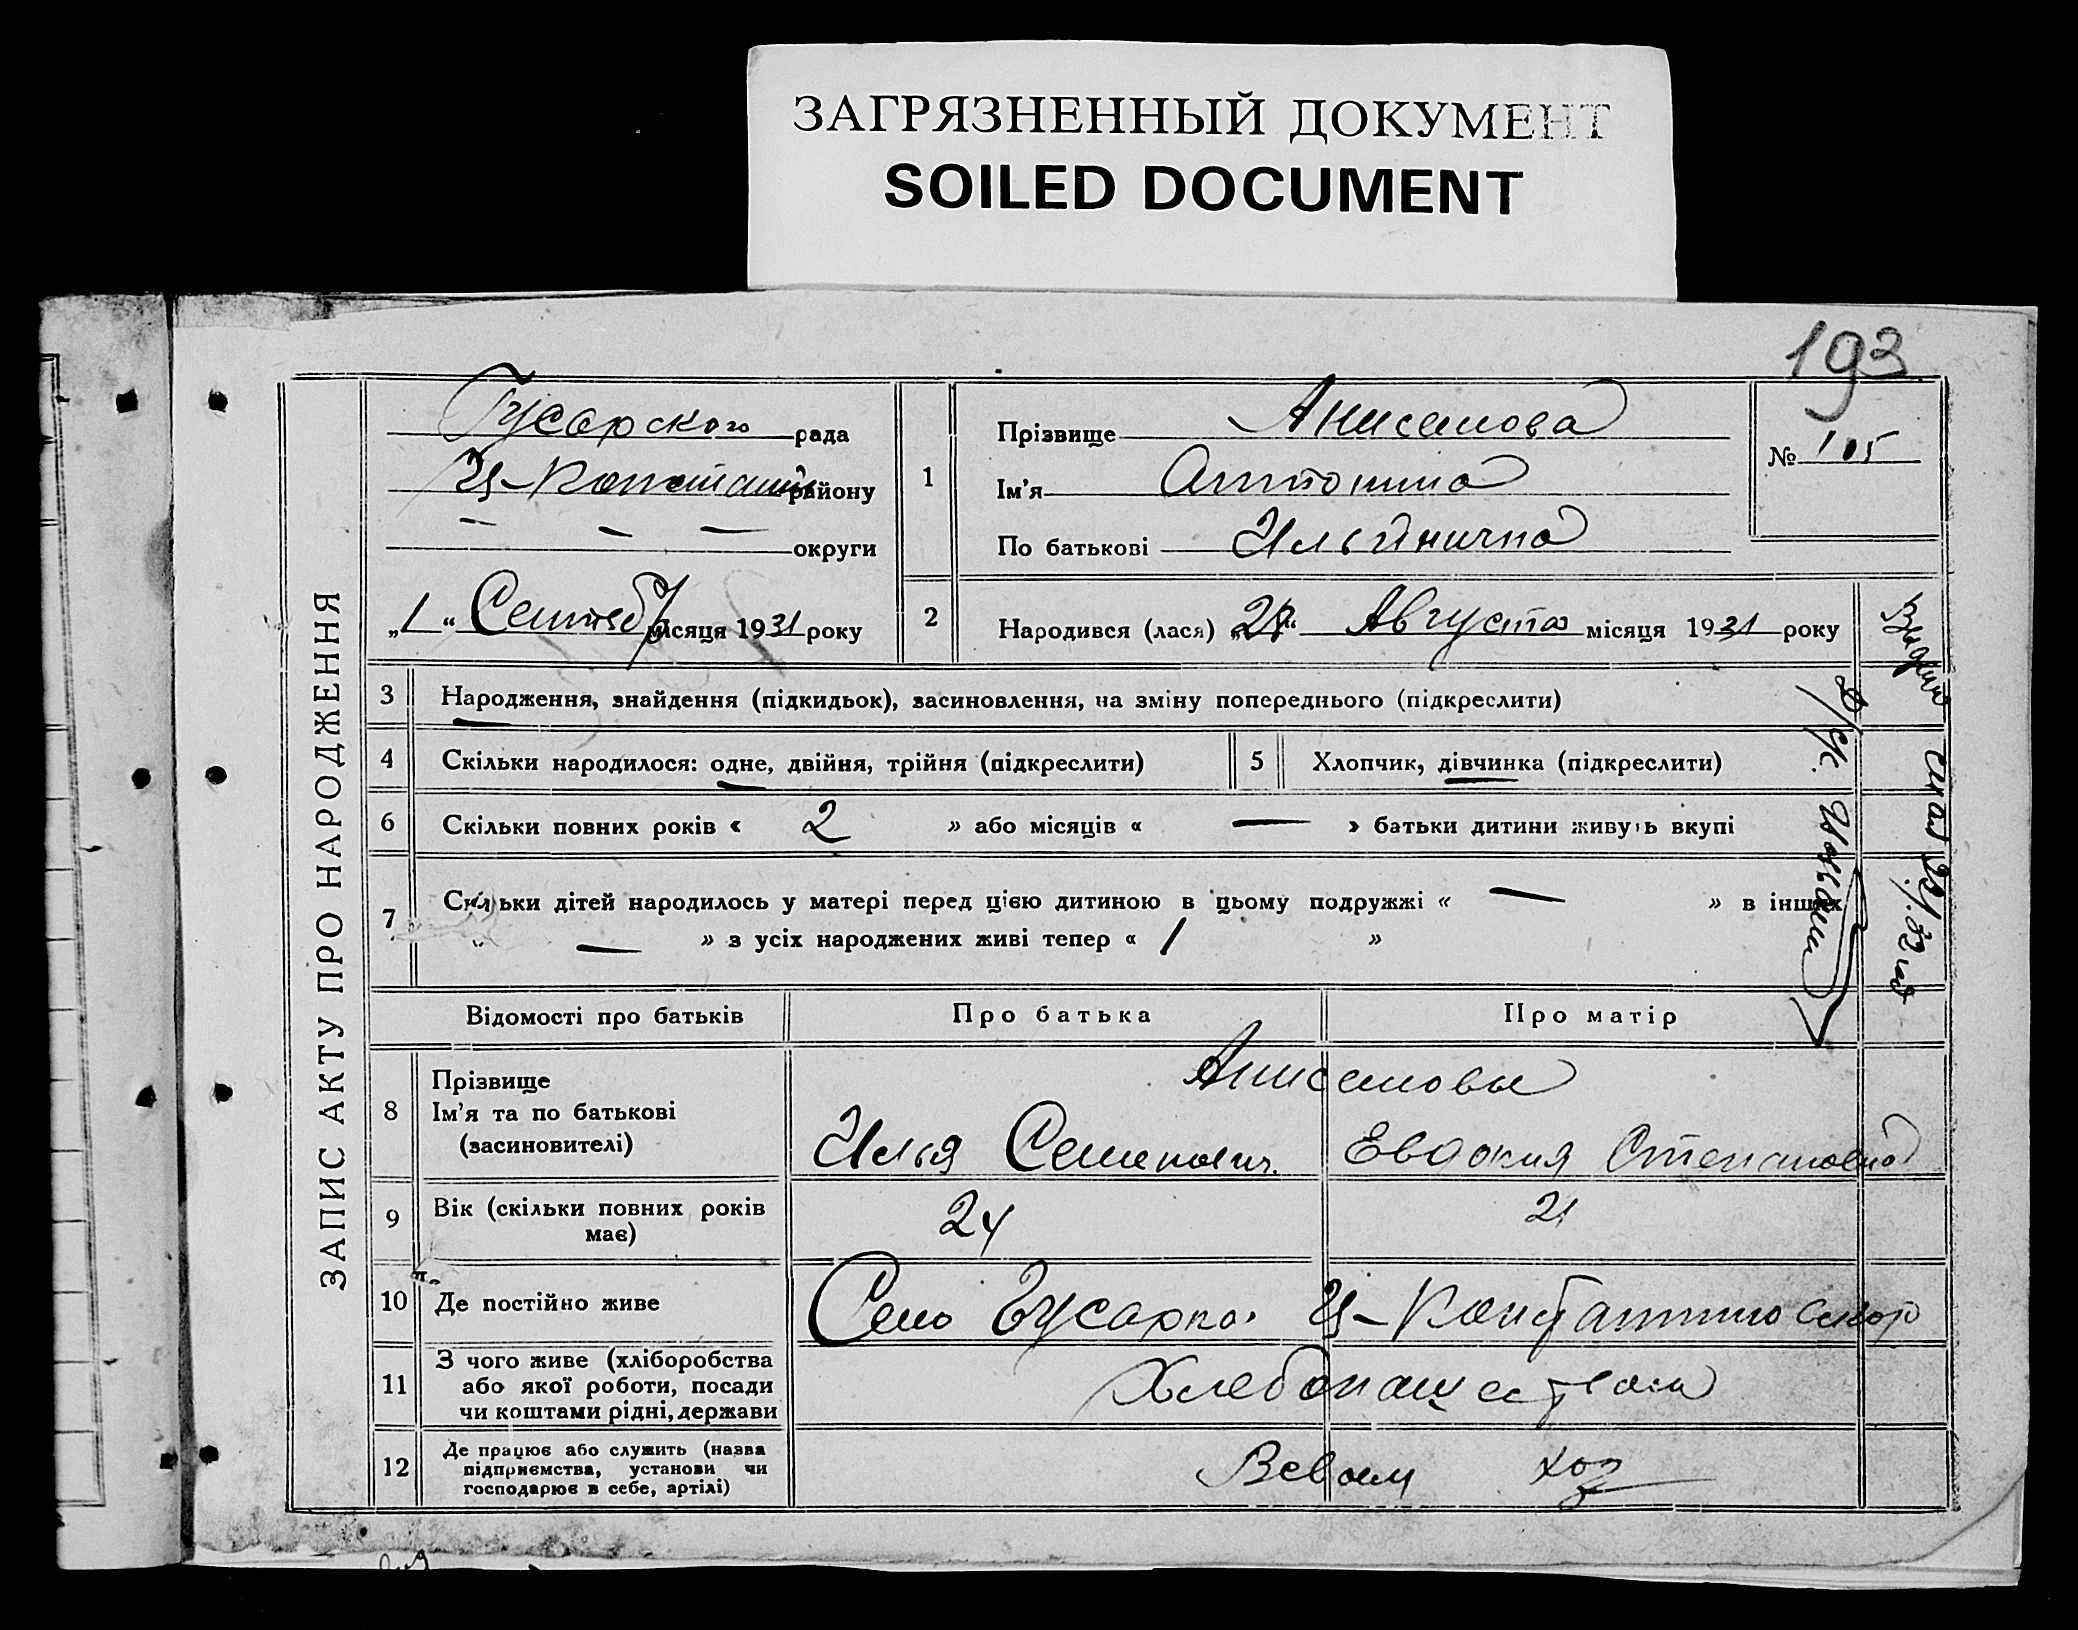 ЗАГРЯЗНЕННЫЙ ДОКУМЕНТ
SOILED DOCUMENT
193
ЗАПИС АКТУ ПРО НАРОДЖЕННЯ
Гусарского рада
району
— — — округи
„1“ Сентябр місяця 1931 року
1
Прізвище Анисимова
Ім'я Антонина
По батькові Ильинична
№ 105
2 Народився (лася) Августа місяця 1931 року
3 Народження, знайдення (підкидьок), засиновлення, на зміну попереднього (підкреслити)
4 Скільки народилося: одне, двійня, трійня (підкреслити)
5 Хлопчик, дівчинка (підкреслити)
6 Скільки повних років « 2 » або місяців « — » батьки дитини живуть вкупі
7 Скільки дітей народилось у матері перед цією дитиною в цьому подружжі « — » в інших
« — » з усіх народжених живі тепер « 1 »
Відомості про батьків Про батька Про матір
8 Прізвище
Ім'я та по батькові
(засиновителі)
Анисимовы
Илья Семенович. Евдокия Степановна
9 Вік (скільки повних років
має)
24 21
10 Де постійно живе Село Гусарка
11 З чого живе (хліборобства
або якої роботи, посади
чи коштами рідні, держави
Хлебопашеством
12 Де працює або служить (назва
підприємства, установи чи
господарює в себе, артілі)
В своем хоз